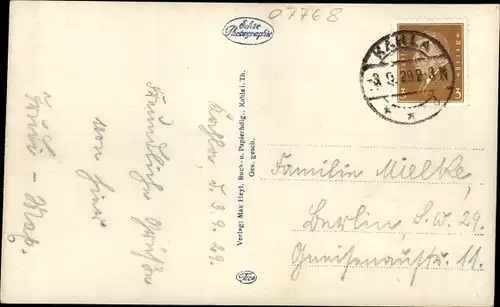 07768
Echte
Photographie
KAHLA
-3.9.29.2-3N
3
Kahla, d. 3.9.29.
Freundliche Grüße
von hier
Verlag: Max Heyl, Buch- u. Papierhdlg., Kahla i. Th.
Ges. gesch.
Familie Mielke,
Berlin, S.W. 29.
Gneisenaustr. 11.